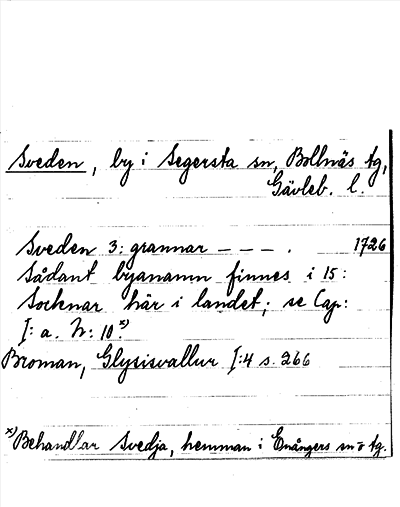 Sveden, by i Segersta sn, Bollnäs tg,
Gävleb. l.
Sveden 3: grannar – – – . 1726
Sådant byanamn finnes i 15:
Socknar här i landet; se Cap:
I: a. N: 10.x)
Broman, Glysisvallur I:4 s. 266
x) Behandlar Svedja, hemman i Enångers sn o tg.